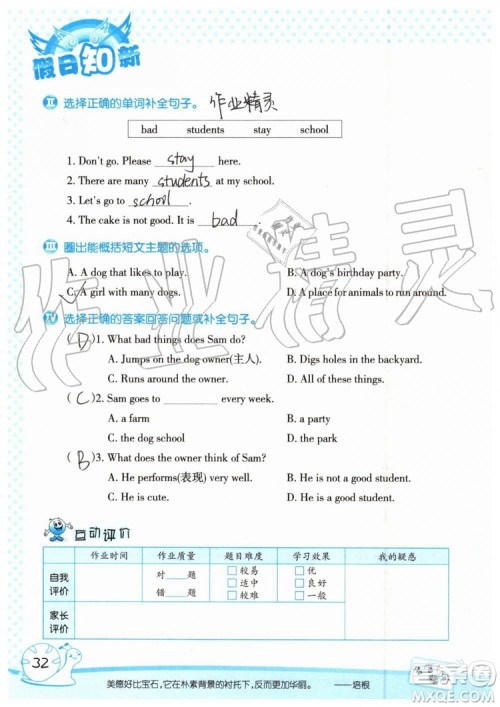 假日知新
Ⅱ 选择正确的单词补全句子。 作业精灵
bad students stay school
1. Don't go. Please stay here.
2. There are many students at my school.
3. Let's go to school.
4. The cake is not good. It is bad.
Ⅲ 圈出能概括短文主题的选项。
A. A dog that likes to play. B. A dog's birthday party.
C. A girl with many dogs. D. A place for animals to run around.
Ⅳ 选择正确的答案回答问题或补全句子。
( D )1. What bad things does Sam do?
A. Jumps on the dog owner(主人). B. Digs holes in the backyard.
C. Runs around the owner. D. All of these things.
( C )2. Sam goes to ________ every week.
A. a farm B. a party
C. the dog school D. the school
( B )3. What does the owner think of Sam?
A. He performs(表现) very well. B. He is not a good student.
C. He is cute. D. He is a good student.
互动评价
作业时间 作业质量 题目难度 学习效果 我的疑惑
自我评价 对____题 错____题 □较易 □适中 □较难 □优 □良好 □一般
家长评价
32
美德好比宝石，它在朴素背景的衬托下，反而更加华丽。 ——培根
作业精灵
答案圈
MXQE.COM